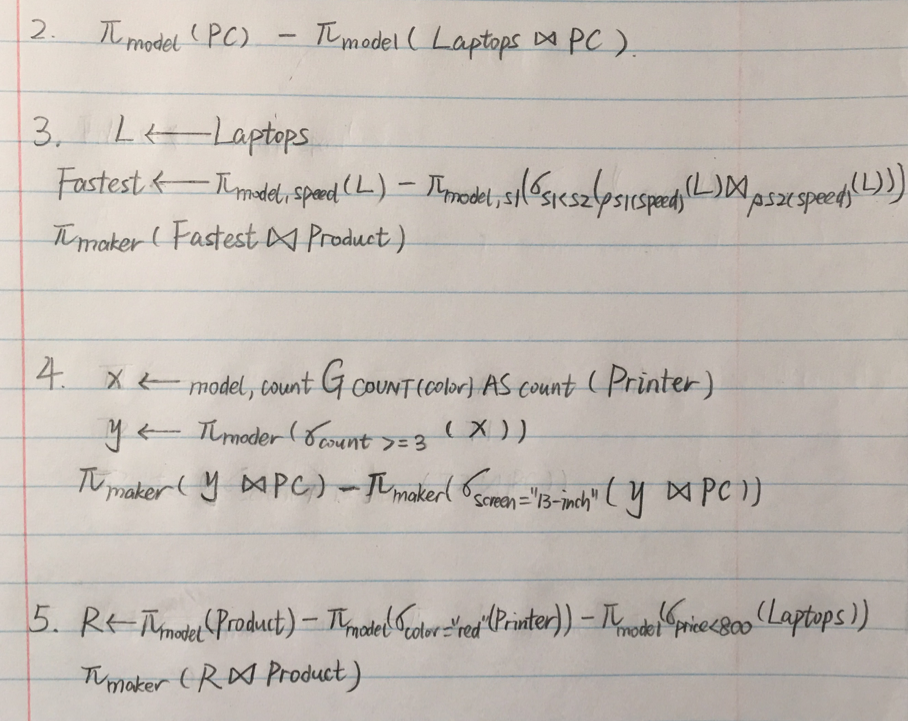 2. π model (PC) - π model (Laptops ⋈ PC).
3. L ← Laptops
Fastest ← π model, speed (L) - π model, s1 (σ s1<s2 (ρ s1(speed) (L) ⋈ ρ s2(speed) (L)))
π maker (Fastest ⋈ Product)
4. x ← model, count G COUNT(color) AS count (Printer)
y ← π moder (σ count >=3 (x))
π maker (y ⋈ PC) - π maker (σ screen="13-inch" (y ⋈ PC))
5. R ← π model (Product) - π model (σ color="red" (Printer)) - π model (σ price<800 (Laptops))
π maker (R ⋈ Product)